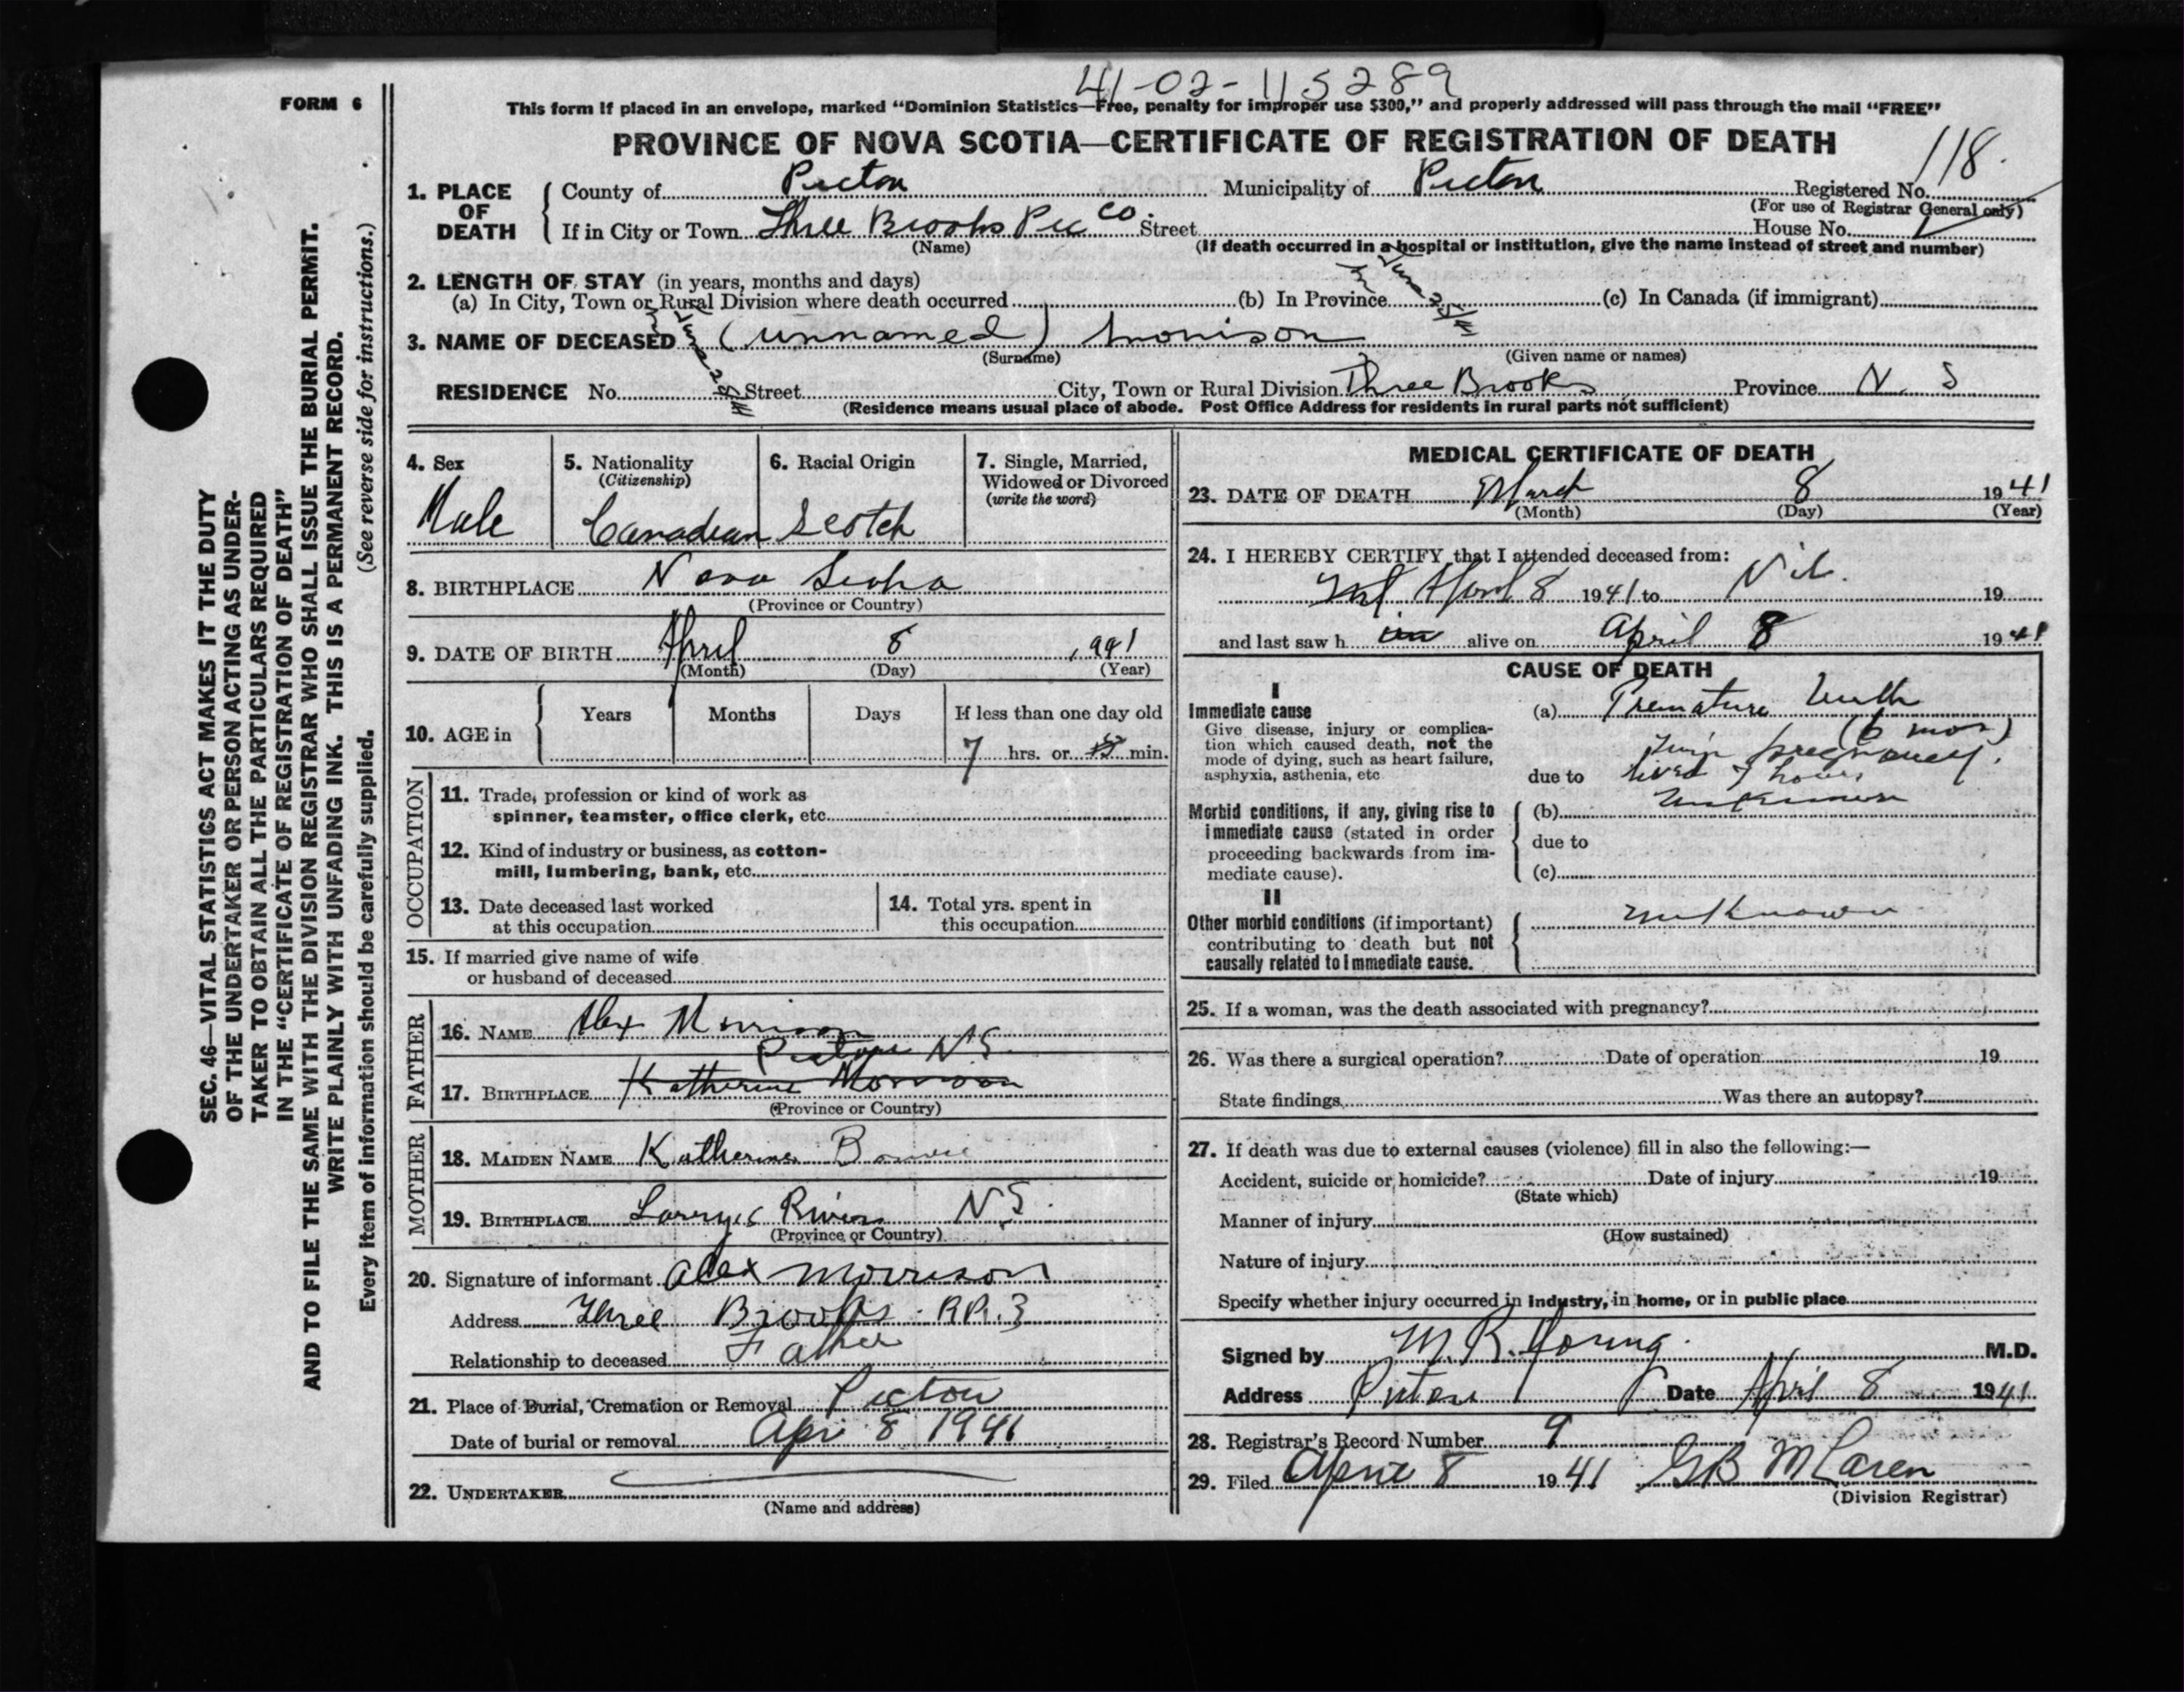 41-02-115289
FORM 6
This form if placed in an envelope, marked "Dominion Statistics—Free, penalty for improper use $300," and properly addressed will pass through the mail "FREE"
PROVINCE OF NOVA SCOTIA—CERTIFICATE OF REGISTRATION OF DEATH
118.
1. PLACE OF DEATH County of Pictou Municipality of Pictou Registered No.
(For use of Registrar General only)
If in City or Town Three Brooks Pic Co. Street House No.
(Name) (If death occurred in a hospital or institution, give the name instead of street and number)
2. LENGTH OF STAY (in years, months and days)
(a) In City, Town or Rural Division where death occurred (b) In Province (c) In Canada (if immigrant)
3. NAME OF DECEASED (unnamed) Morrison
(Surname) (Given name or names)
RESIDENCE No. Street City, Town or Rural Division Three Brooks Province N. S
(Residence means usual place of abode. Post Office Address for residents in rural parts not sufficient)
4. Sex
Male
5. Nationality
(Citizenship)
Canadian
6. Racial Origin
Scotch
7. Single, Married,
Widowed or Divorced
(write the word)
8. BIRTHPLACE Nova Scotia
(Province or Country)
9. DATE OF BIRTH April 8 1941
(Month) (Day) (Year)
10. AGE in Years Months Days If less than one day old
7 hrs. or min.
OCCUPATION
11. Trade, profession or kind of work as
spinner, teamster, office clerk, etc.
12. Kind of industry or business, as cotton-
mill, lumbering, bank, etc.
13. Date deceased last worked
at this occupation
14. Total yrs. spent in
this occupation
15. If married give name of wife
or husband of deceased
FATHER
16. NAME Alex Morrison
Pictou N S
17. BIRTHPLACE Katherine Morrison
(Province or Country)
MOTHER
18. MAIDEN NAME Katherine
19. BIRTHPLACE River N S.
(Province or Country)
20. Signature of informant Alex Morrison
Address Three Brooks R.R. 3
Relationship to deceased Father
21. Place of Burial, Cremation or Removal Pictou
Date of burial or removal Apr 8 1941
22. UNDERTAKER
(Name and address)
MEDICAL CERTIFICATE OF DEATH
23. DATE OF DEATH March 8 1941
(Month) (Day) (Year)
24. I HEREBY CERTIFY that I attended deceased from:
April 8 1941 to Nil. 19
and last saw h im alive on April 8 1941
CAUSE OF DEATH
I
Immediate cause
Give disease, injury or complica-
tion which caused death, not the
mode of dying, such as heart failure,
asphyxia, asthenia, etc
(a) Premature birth
(6 mos)
Twin pregnancy.
due to lived 7 hours
Morbid conditions, if any, giving rise to
immediate cause (stated in order
proceeding backwards from im-
mediate cause).
(b) unknown
due to
(c)
II
Other morbid conditions (if important)
contributing to death but not
causally related to immediate cause.
unknown
25. If a woman, was the death associated with pregnancy?
26. Was there a surgical operation? Date of operation 19
State findings Was there an autopsy?
27. If death was due to external causes (violence) fill in also the following:—
Accident, suicide or homicide? Date of injury 19
(State which)
Manner of injury
(How sustained)
Nature of injury
Specify whether injury occurred in industry, in home, or in public place
Signed by M. R. Young. M.D.
Address Pictou Date April 8 1941
28. Registrar's Record Number 9
29. Filed April 8 1941 GB McLaren
(Division Registrar)
SEC. 46—VITAL STATISTICS ACT MAKES IT THE DUTY
OF THE UNDERTAKER OR PERSON ACTING AS UNDER-
TAKER TO OBTAIN ALL THE PARTICULARS REQUIRED
IN THE "CERTIFICATE OF REGISTRATION OF DEATH"
AND TO FILE THE SAME WITH THE DIVISION REGISTRAR WHO SHALL ISSUE THE BURIAL PERMIT.
WRITE PLAINLY WITH UNFADING INK. THIS IS A PERMANENT RECORD.
Every item of information should be carefully supplied. (See reverse side for instructions.)